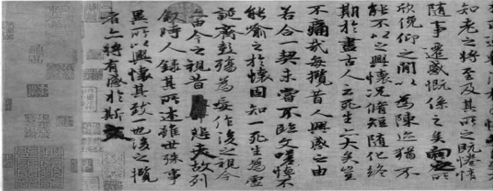 知老之將至及其所之既惓情
隨事遷感慨係之矣向之所
欣俛仰之間以為陳迹猶不
能不以之興懷況脩短隨化終
期於盡古人云死生亦大矣豈
不痛哉每攬昔人興感之由
若合一契未嘗不臨文嗟悼不
能喻之於懷固知一死生為虛
誕齊彭殤為妄作後之視今
亦由今之視昔悲夫故列
敘時人錄其所述雖世殊事
異所以興懷其致一也後之攬
者亦將有感於斯文